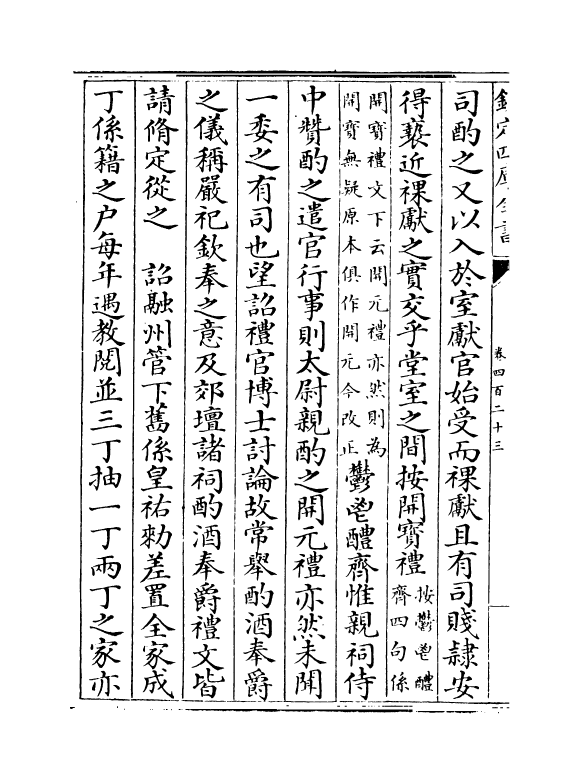 欽定四庫全書
卷四百二十三
司酌之又以入於室獻官始受而祼獻且有司賤隸安
得褻近祼獻之實交乎堂室之間按開寶禮
按鬱鬯醴
齊四句係
開寶禮文下云開元禮亦然則為
開寶無疑原本俱作開元今改正
鬱鬯醴齊惟親祠侍
中贊酌之遣官行事則太尉親酌之開元禮亦然未聞
一委之有司也望詔禮官博士討論故常舉酌酒奉爵
之儀稱嚴祀欽奉之意及郊壇諸祠酌酒奉爵禮文皆
請脩定從之　詔融州管下舊係皇祐勅差置全家成
丁係籍之户每年遇教閱並三丁抽一丁兩丁之家亦